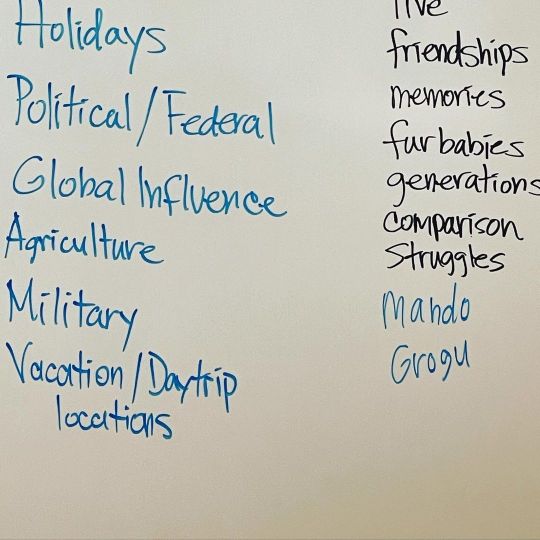 Holidays
Political / Federal
Global Influence
Agriculture
Military
Vacation / Daytrip
locations
friendships
memories
furbabies
generations
comparison
struggles
Mando
Grogu